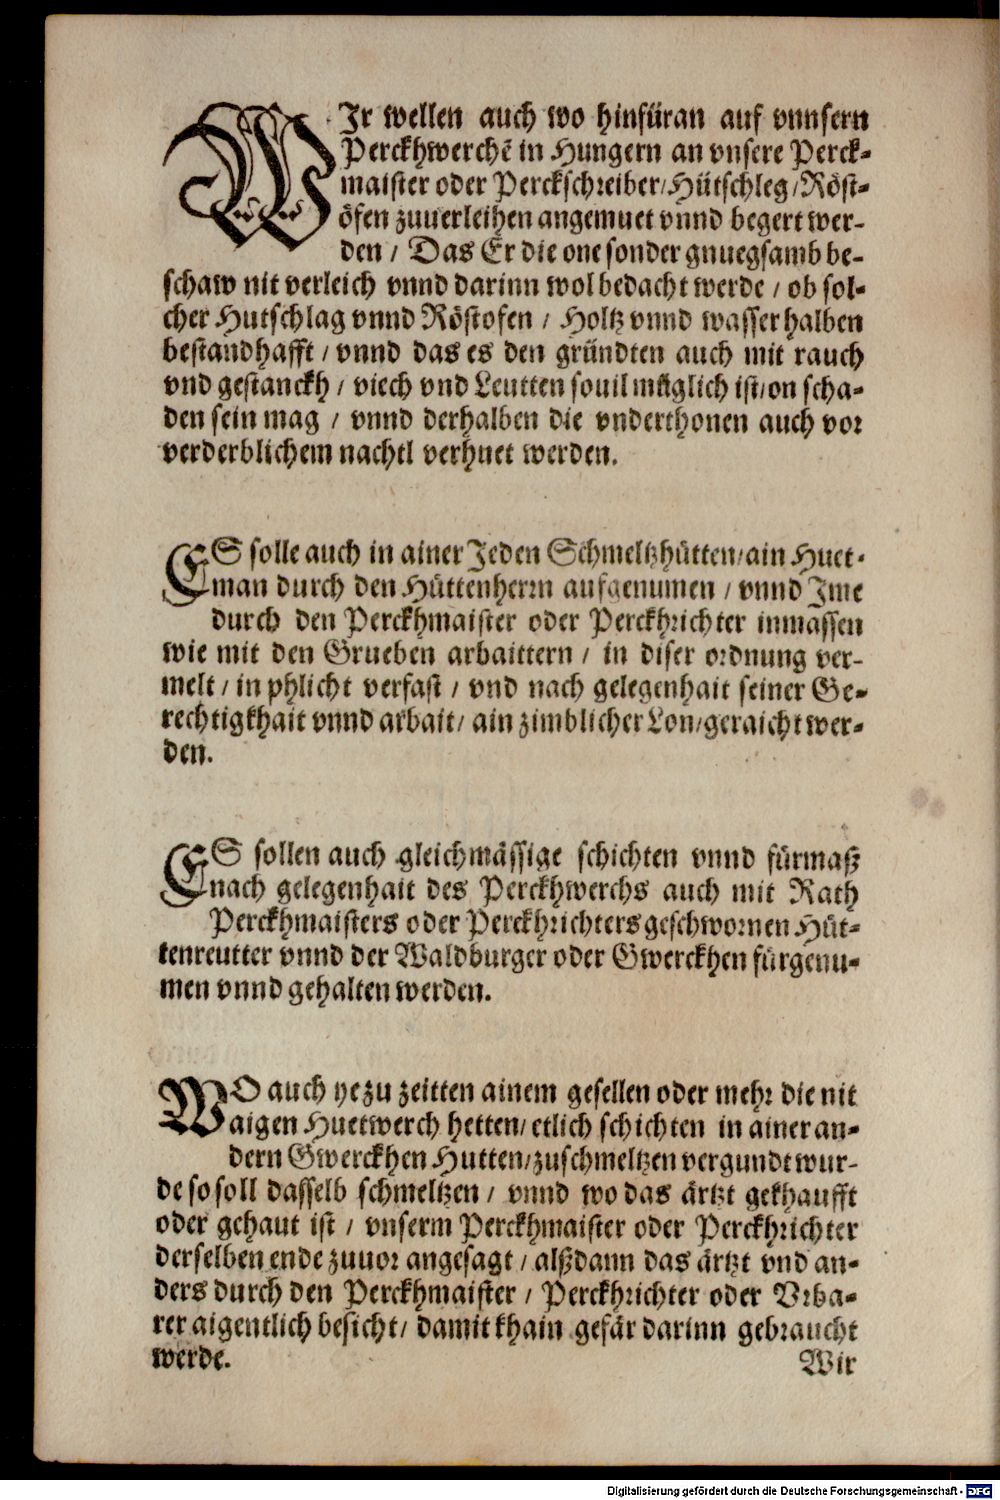 WIr wellen auch wo hinfüran auf vnnsern
Perckhwerchē in Hungern an vnsere Perck-
maister oder Perckschreiber/Hütschleg/Röst-
öfen zuuerleihen angemuet vnnd begert wer-
den / Das Er die one sonder gnuegsamb be-
schaw nit verleich vnnd darinn wol bedacht werde / ob sol-
cher Hutschlag vnnd Röstofen / Holtz vnnd wasser halben
bestandhafft / vnnd das es den gründten auch mit rauch
vnd gestanckh / viech vnd Leutten souil müglich ist/on scha-
den sein mag / vnnd derhalben die vnderthonen auch vor
verderblichem nachtl verhuet werden.
ES solle auch in ainer Jeden Schmeltzhütten/ain Huet-
man durch den Hüttenherrn aufgenumen / vnnd Ime
durch den Perckhmaister oder Perckhrichter inmassen
wie mit den Grueben arbaittern / in diser ordnung ver-
melt / in phlicht verfast / vnd nach gelegenhait seiner Ge-
rechtigkhait vnnd arbait/ ain zimblicher Lon/geraicht wer-
den.
ES sollen auch gleichmässige schichten vnnd fürmaß
nach gelegenhait des Perckhwerchs auch mit Rath
Perckhmaisters oder Perckhrichters geschwornen Hüt-
tenreutter vnnd der Waldburger oder Gwerckhen fürgenu-
men vnnd gehalten werden.
WO auch ye zu zeitten ainem gesellen oder mehr die nit
aigen Huetwerch hetten/etlich schichten in ainer an-
dern Gwerckhen Hutten/zuschmeltzen vergundt wur-
de so soll dasselb schmeltzen / vnnd wo das ärtzt gekhaufft
oder gehaut ist / vnserm Perckhmaister oder Perckhrichter
derselben ende zuuor angesagt / alßdann das ärtzt vnd an-
ders durch den Perckhmaister / Perckhrichter oder Vrba-
rer aigentlich besicht/ damit khain gefär darinn gebraucht
werde.
Wir
Digitalisierung gefördert durch die Deutsche Forschungsgemeinschaft - DFG